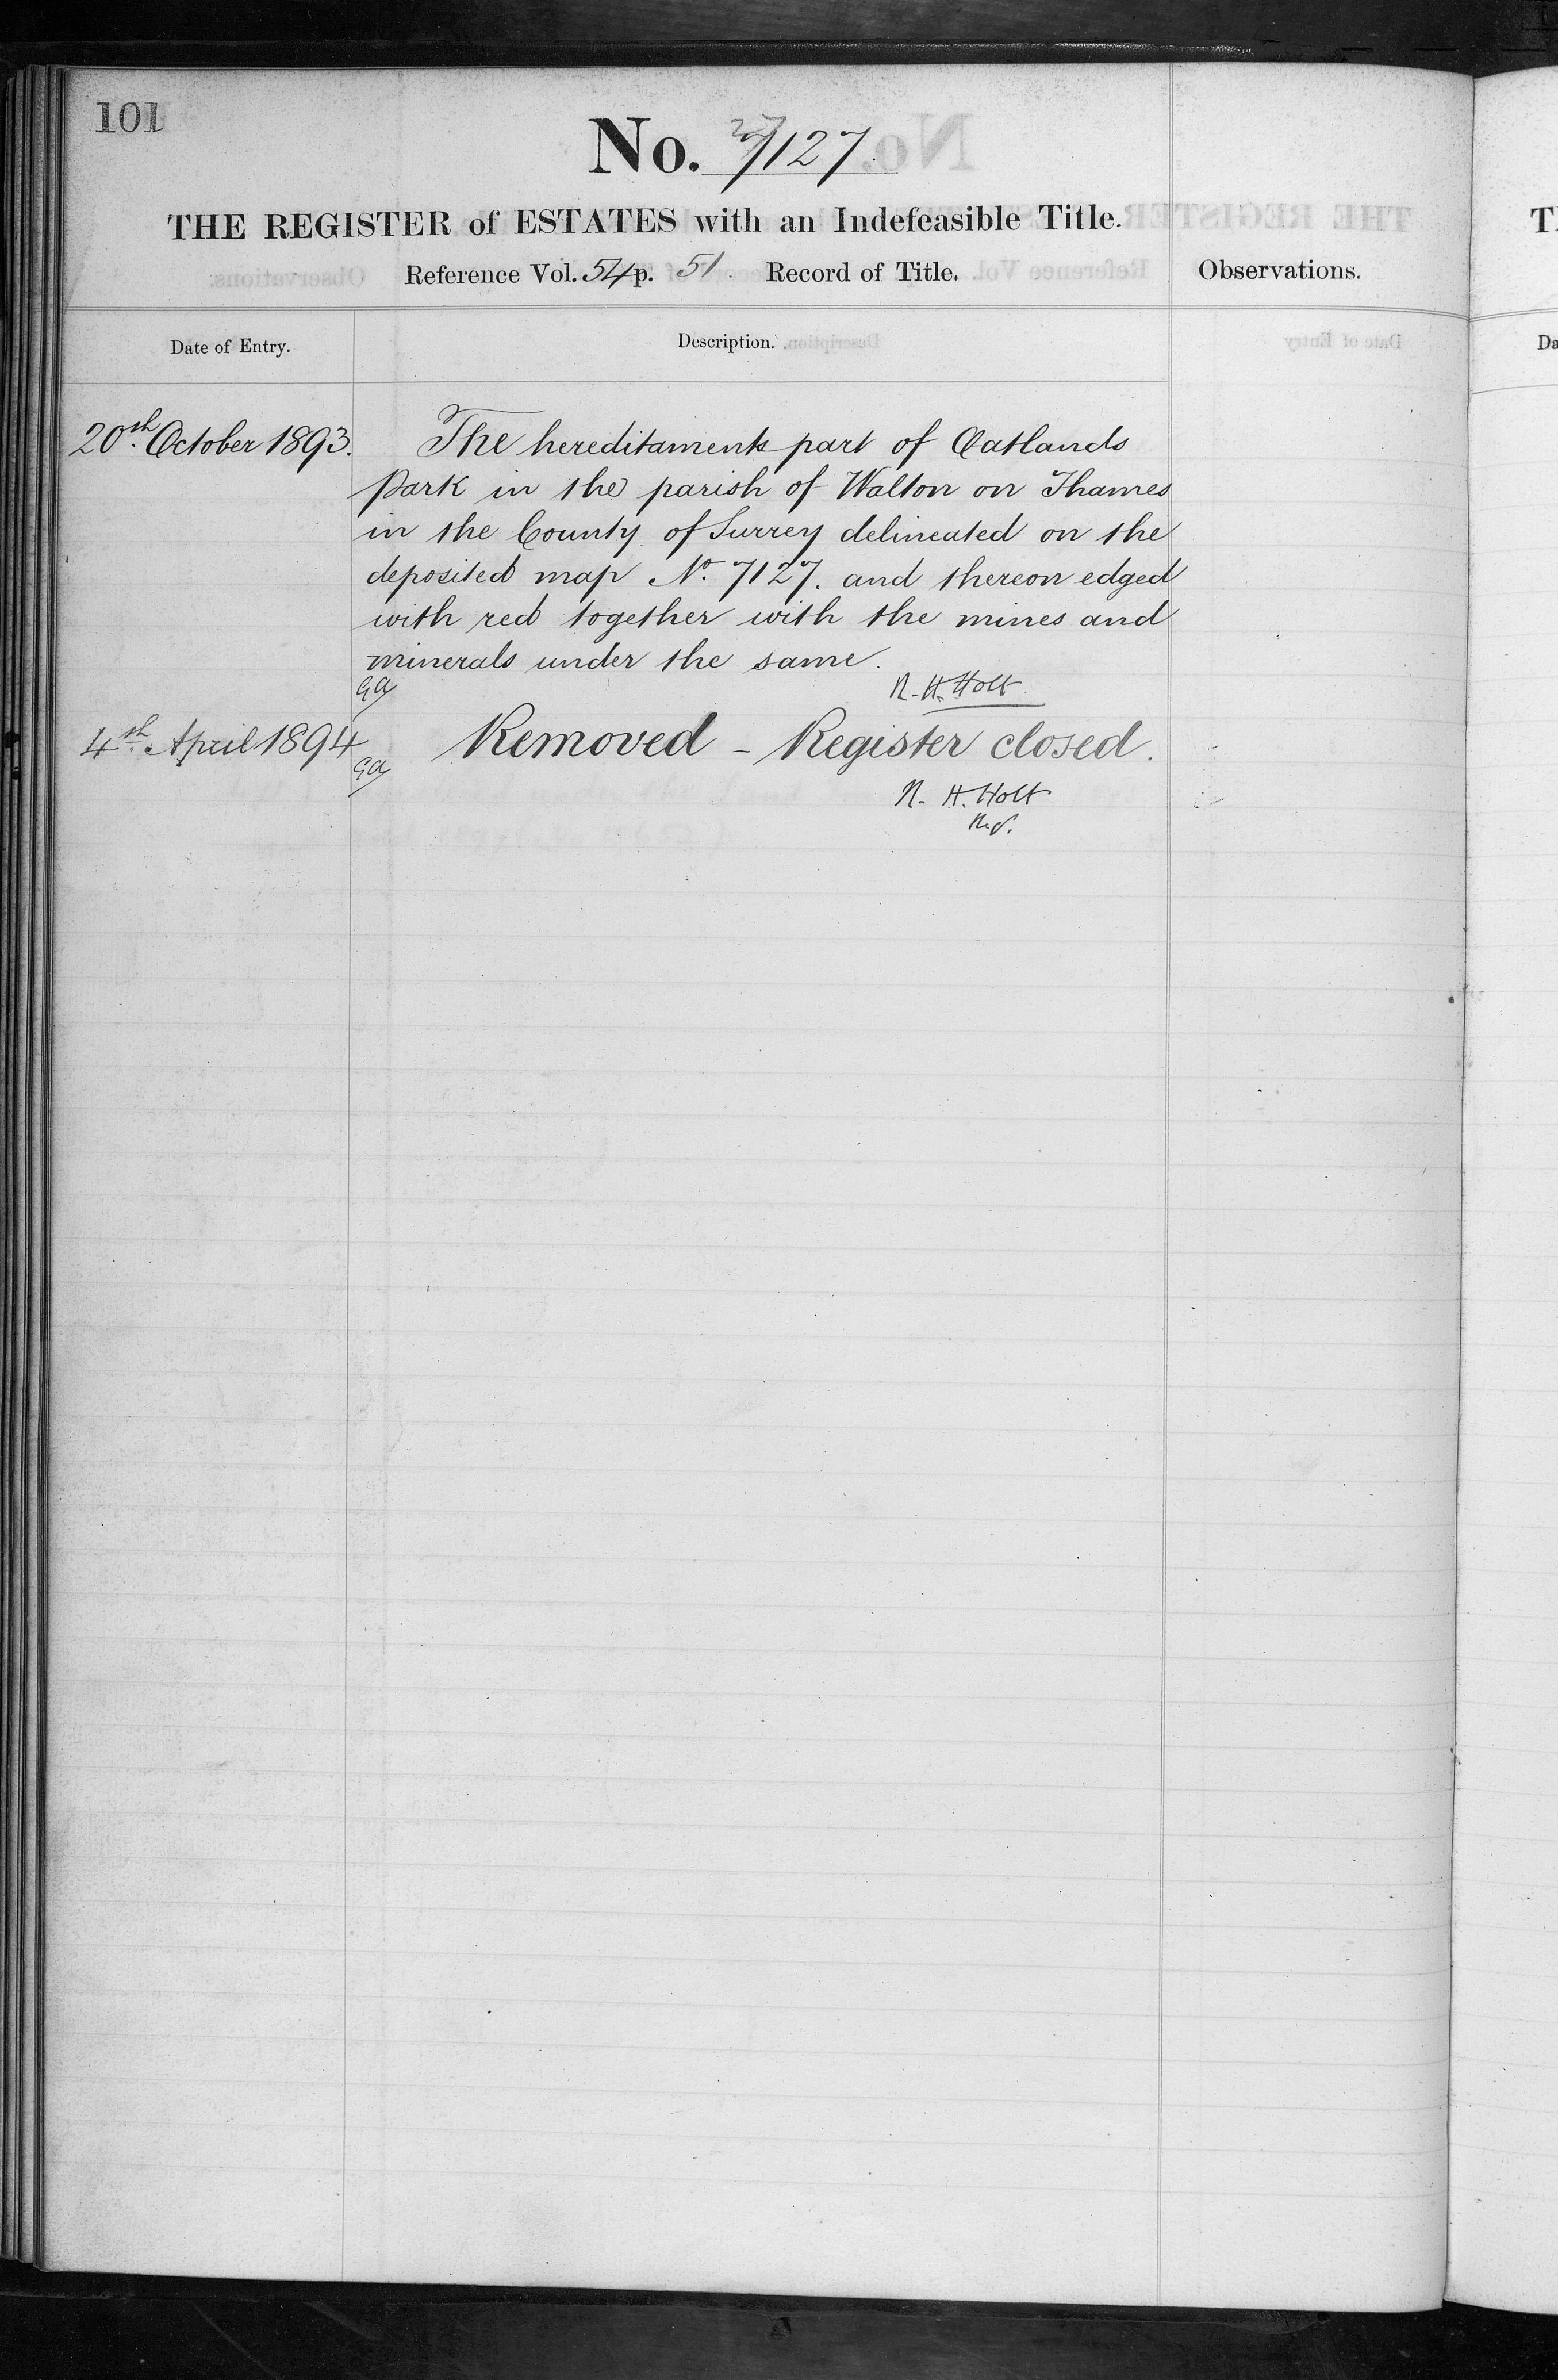 101
No. 7127
THE REGISTER of ESTATES with an Indefeasible Title.
Reference Vol. 54 p. 51 Record of Title.
Observations.
Date of Entry.
Description.
20th October 1893.
The hereditaments part of Oatlands
Park in the parish of Walton on Thames
in the County of Surrey delineated on the
deposited map No. 7127. and thereon edged
with red together with the mines and
minerals under the same.
R. H. Holt
4th April 1894
Removed - Register closed.
R. H. Holt